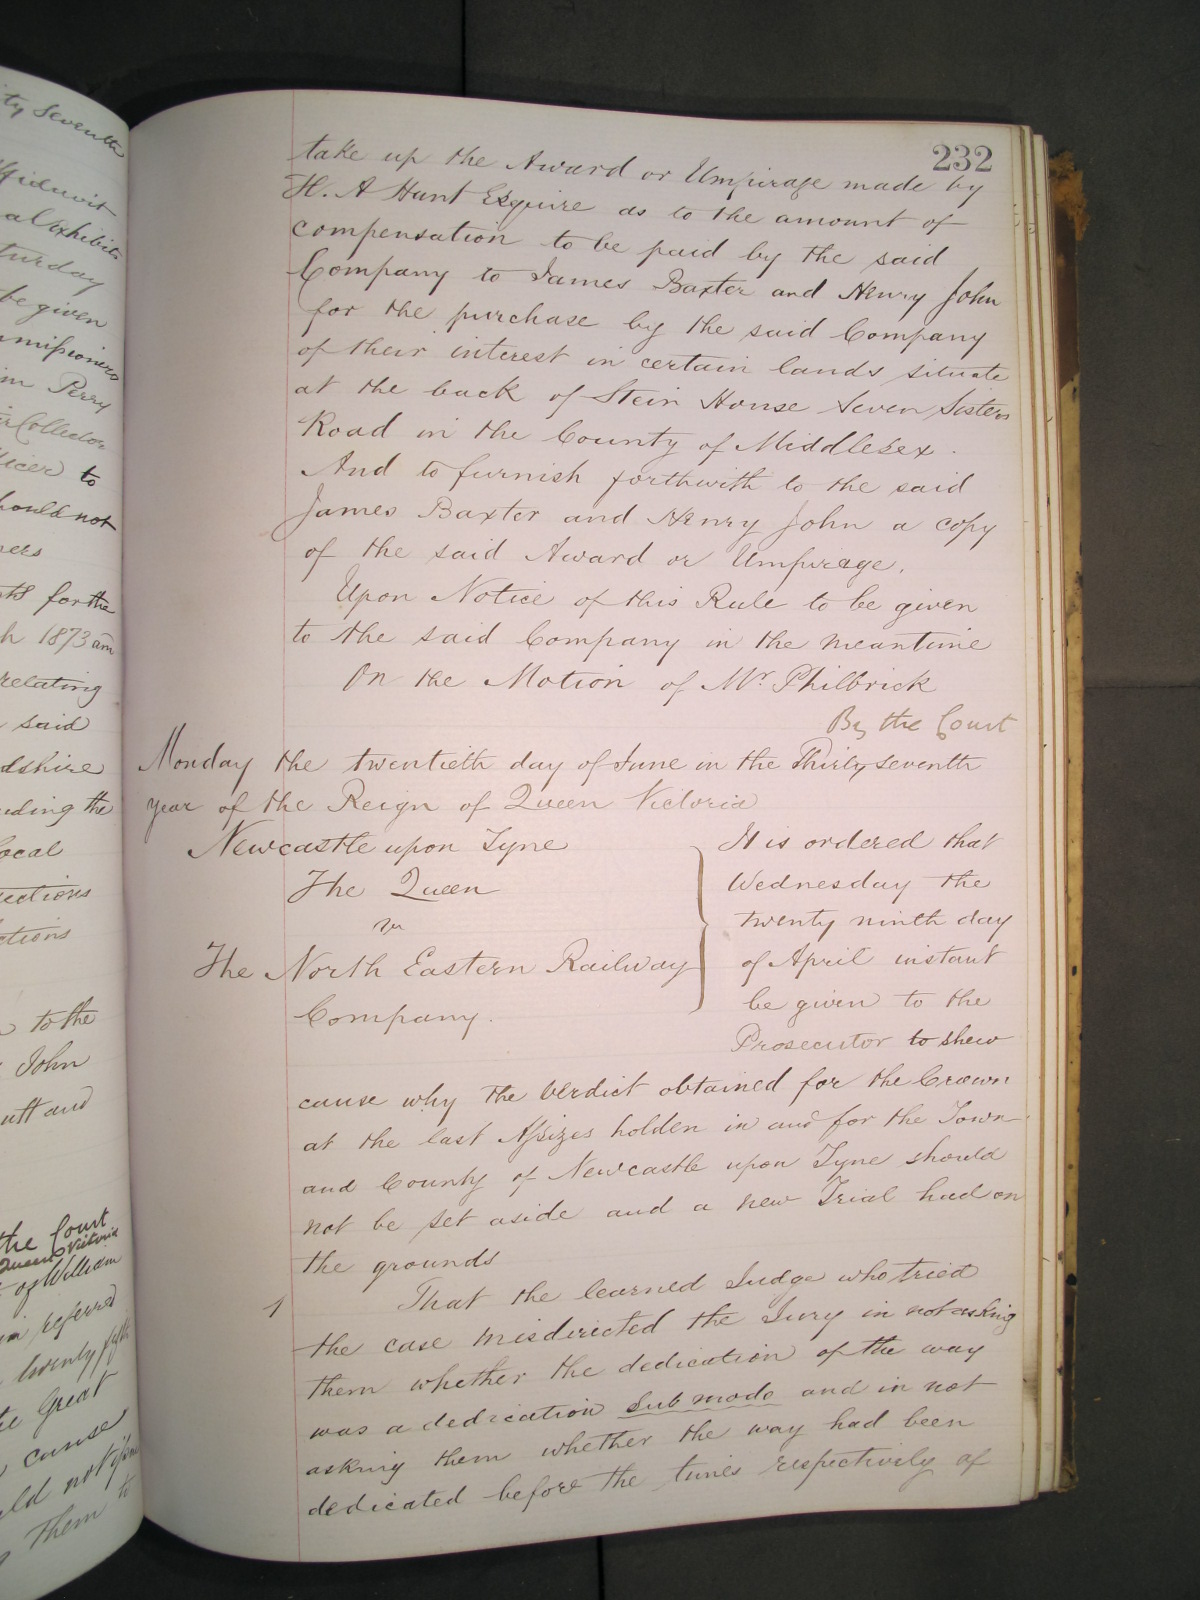 232
take up the Award or Umpirage made by
H. A Hunt Esquire as to the amount of
compensation to be paid by the said
Company to James Baxter and Henry John
for the purchase by the said Company
of their interest in certain lands situate
at the back of Stein House Seven Sisters
Road in the County of Middlesex.
And to furnish forthwith to the said
James Baxter and Henry John a copy
of the said Award or Umpirage.
Upon Notice of this Rule to be given
to the said Company in the meantime
On the Motion of Mr Philbrick
By the Court
Monday the twentieth day of June in the Thirty seventh
year of the Reign of Queen Victoria
Newcastle upon Tyne
The Queen
vs
The North Eastern Railway
Company.
It is ordered that
Wednesday the
twenty ninth day
of April instant
be given to the
Prosecutor to shew
cause why the verdict obtained for the Crown
at the last Assizes holden in and for the Town
and County of Newcastle upon Tyne should
not be set aside and a new Trial had on
the grounds
1 That the learned Judge who tried
the case misdirected the Jury in not asking
them whether the dedication of the way
was a dedication sub modo and in not
asking them whether the way had been
dedicated before the times respectively of
ty Seventh
turday
be given
im Perry
Collector
to
should not
for the
h 1873 am
relating
said
dshire
uding the
ocal
ections
ctions
to the
John
utt and
the Court
Queen Victoria
of William
referred
twenty fifth
the Great
cause
ld not
them to